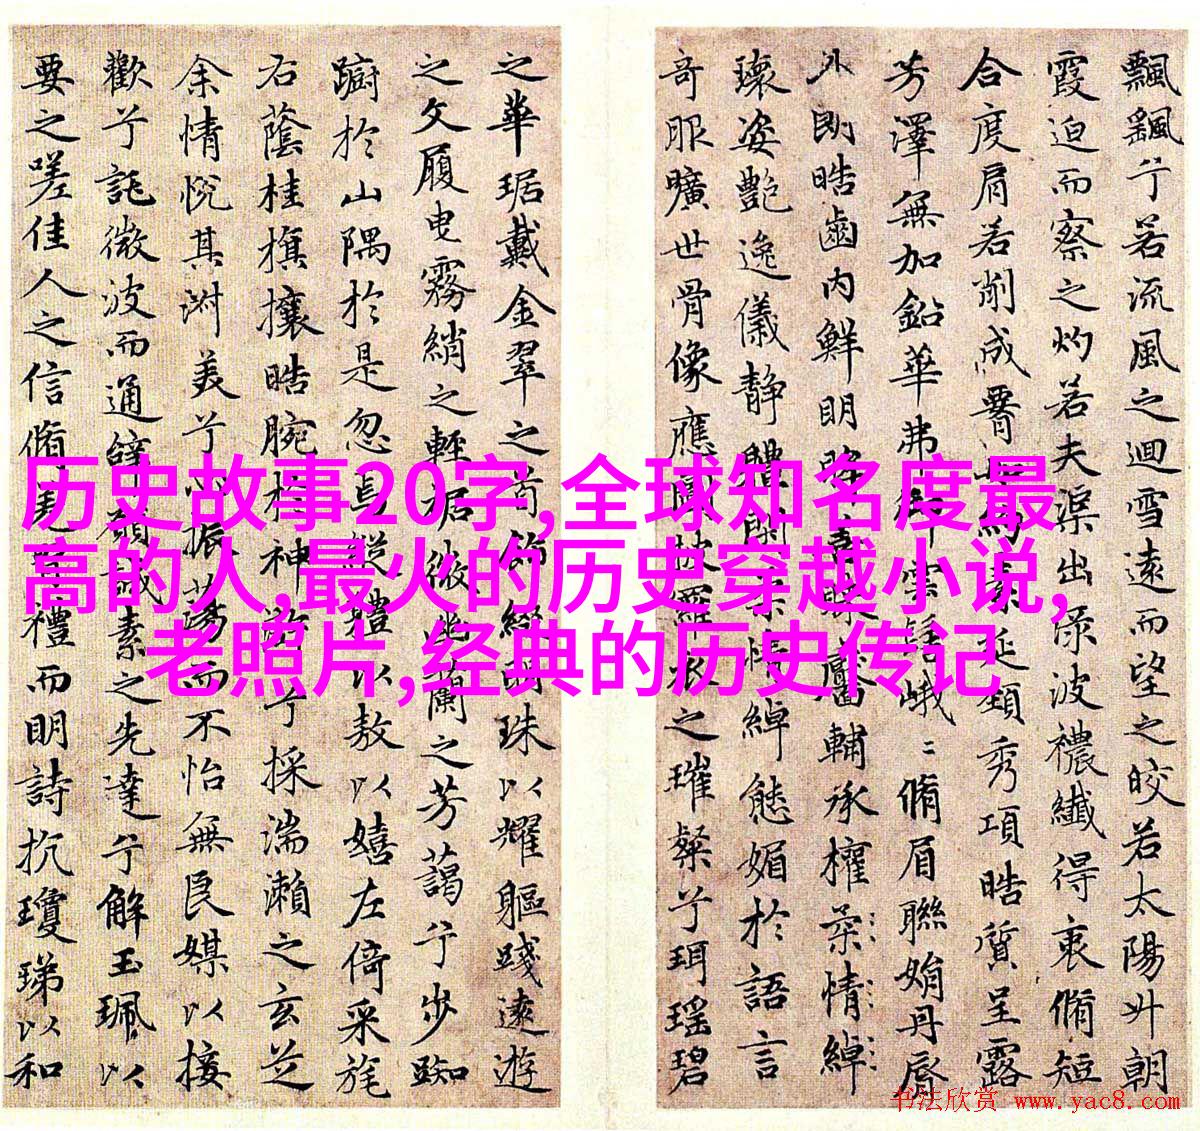 飄飖兮若流風之迴雪遠而望之皎若太陽升朝
霞迫而察之灼若夫渠出渌波襛纖得衷脩短
合度肩若削成延頸秀項皓質呈露
芳澤無加鉛華弗御雲髻峨〻脩眉聯娟丹脣
外朗皓齒内鮮明眸善睞靨輔承權柔情綽
瓌姿艷逸儀静體閑柔情綽態媚於語言
奇服曠世骨像應圖披羅衣之璀粲兮珥瑶碧
之華琚戴金翠之首飾綴明珠以耀軀踐遠遊
之文履曳霧綃之輕裾微幽蘭之芳藹兮步踟
蹰於山隅於是忽焉縱體以敖以嬉左倚采旄
右蔭桂旗攘皓腕於神滸兮採湍瀨之玄芝
余情悅其淑美兮心振蕩而不怡無良媒以接
歡兮託微波而通辭願誠素之先達兮解玉珮以
要之嗟佳人之信脩羌習禮而明詩抗瓊珶以和
历史故事20字,全球知名度最
高的人,最火的历史穿越小说,
老照片,经典的历史传记
书法欣赏 www.yac8.com